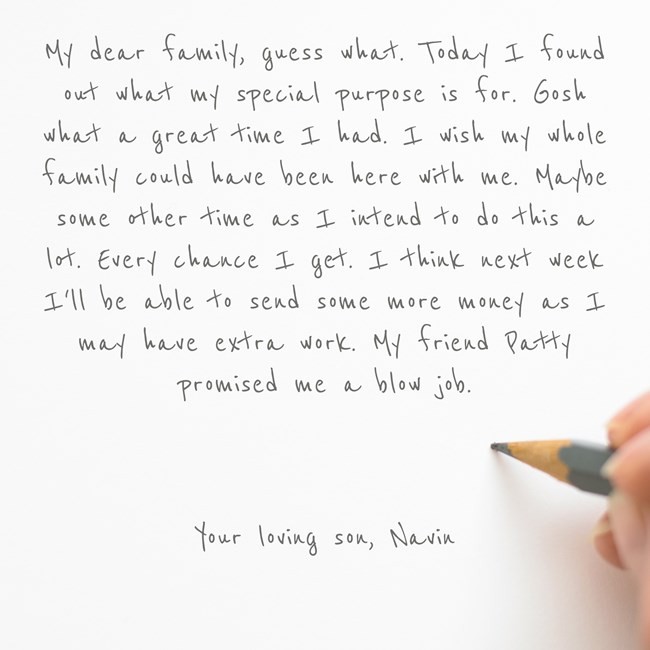 My dear family, guess what. Today I found
out what my special purpose is for. Gosh
what a great time I had. I wish my whole
family could have been here with me. Maybe
some other time as I intend to do this a
lot. Every chance I get. I think next week
I'll be able to send some more money as I
may have extra work. My friend Patty
promised me a blow job.
Your loving son, Navin